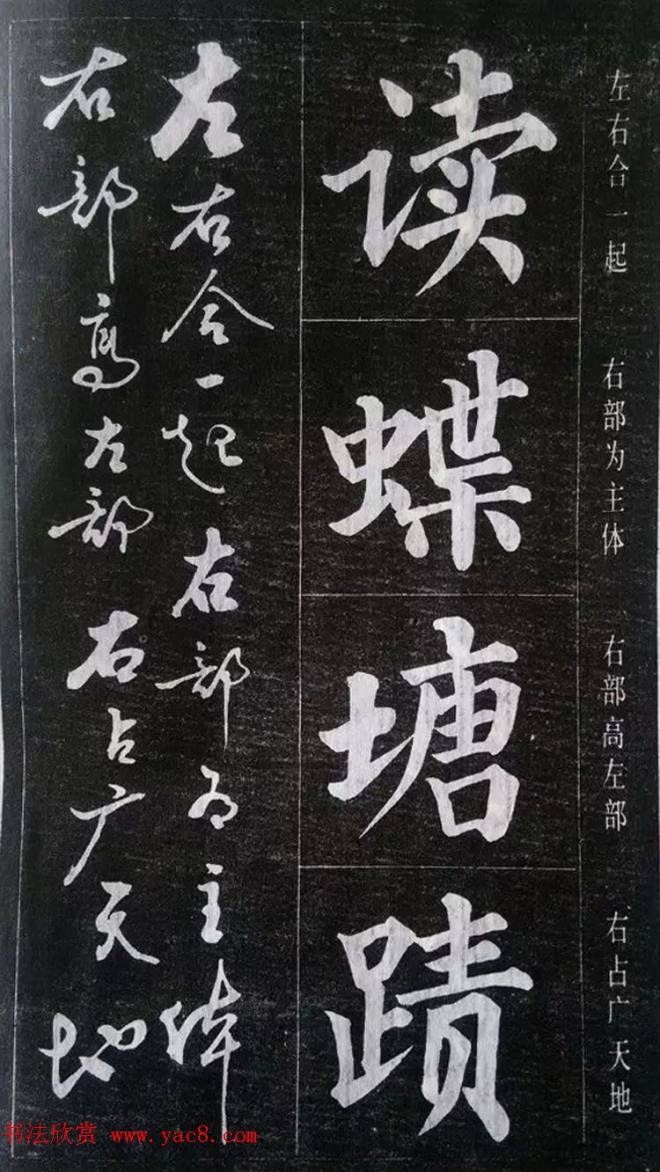 左右合一起 右部为主体 右部高左部 右占广天地
读
蝶
塘
蹟
左右合一起右部为主体
右部高左部右占广天地
书法欣赏 www.yac8.com